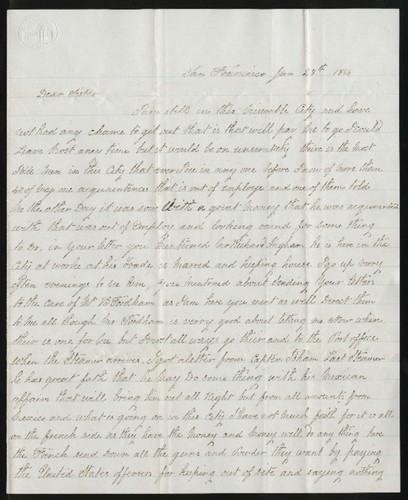 San Francisco Jan 28th 186
Dear Sister
I am still in this Miserable City and have
not had any chance to get out that is that will pay me to go I could
Leave Most any time but it would be on uncertinty there is the most
Idle Men in this City that ever I see in any one before I know of more than
of my one acquaintences that is out of employe and one of them told
Me the other Day it was so with a great many that he was acquainted
with that was out of Employ and looking around for some thing
to do, in your letter you mentioned Richard Ingham he is here in the
City at works at his trade is Marred and keeping house. I go up very
often evenings to see them, you mentioned about sending your letters
to the care of Mr Fordham as I am here you went as well Direct them
to me all though Mr Fordham is verry good about leting me now when
their is one for me but I most all ways go their and to the Post office
when the Steamer arrives. I got a letter from Captin Adam last Steamer
he has great faith that he may Do some thing with his Mexican
affairs that will bring him out all Right but from all amounts from
Mexico and what is going on in this City I have not much faith for it is all
on the french side as they have the Money and Money will Do any thing here
the French send Down all the guns and Powder they want by paying
the United States officers for keeping out of site and saying nothing